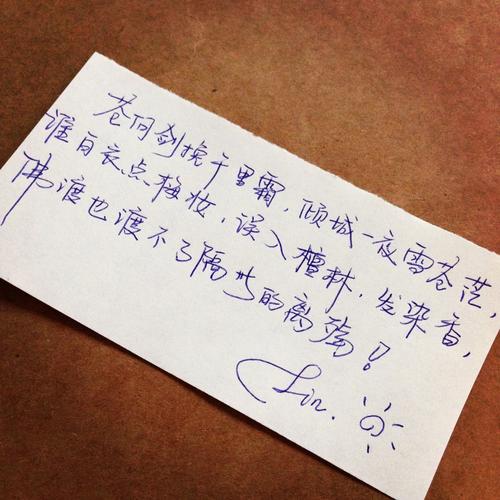 苍何剑挽千里霜，倾城一夜雪苍茫，
谁白衣点梅妆，误入檀林，发染香，
佛渡也渡不了隔世的离殇！